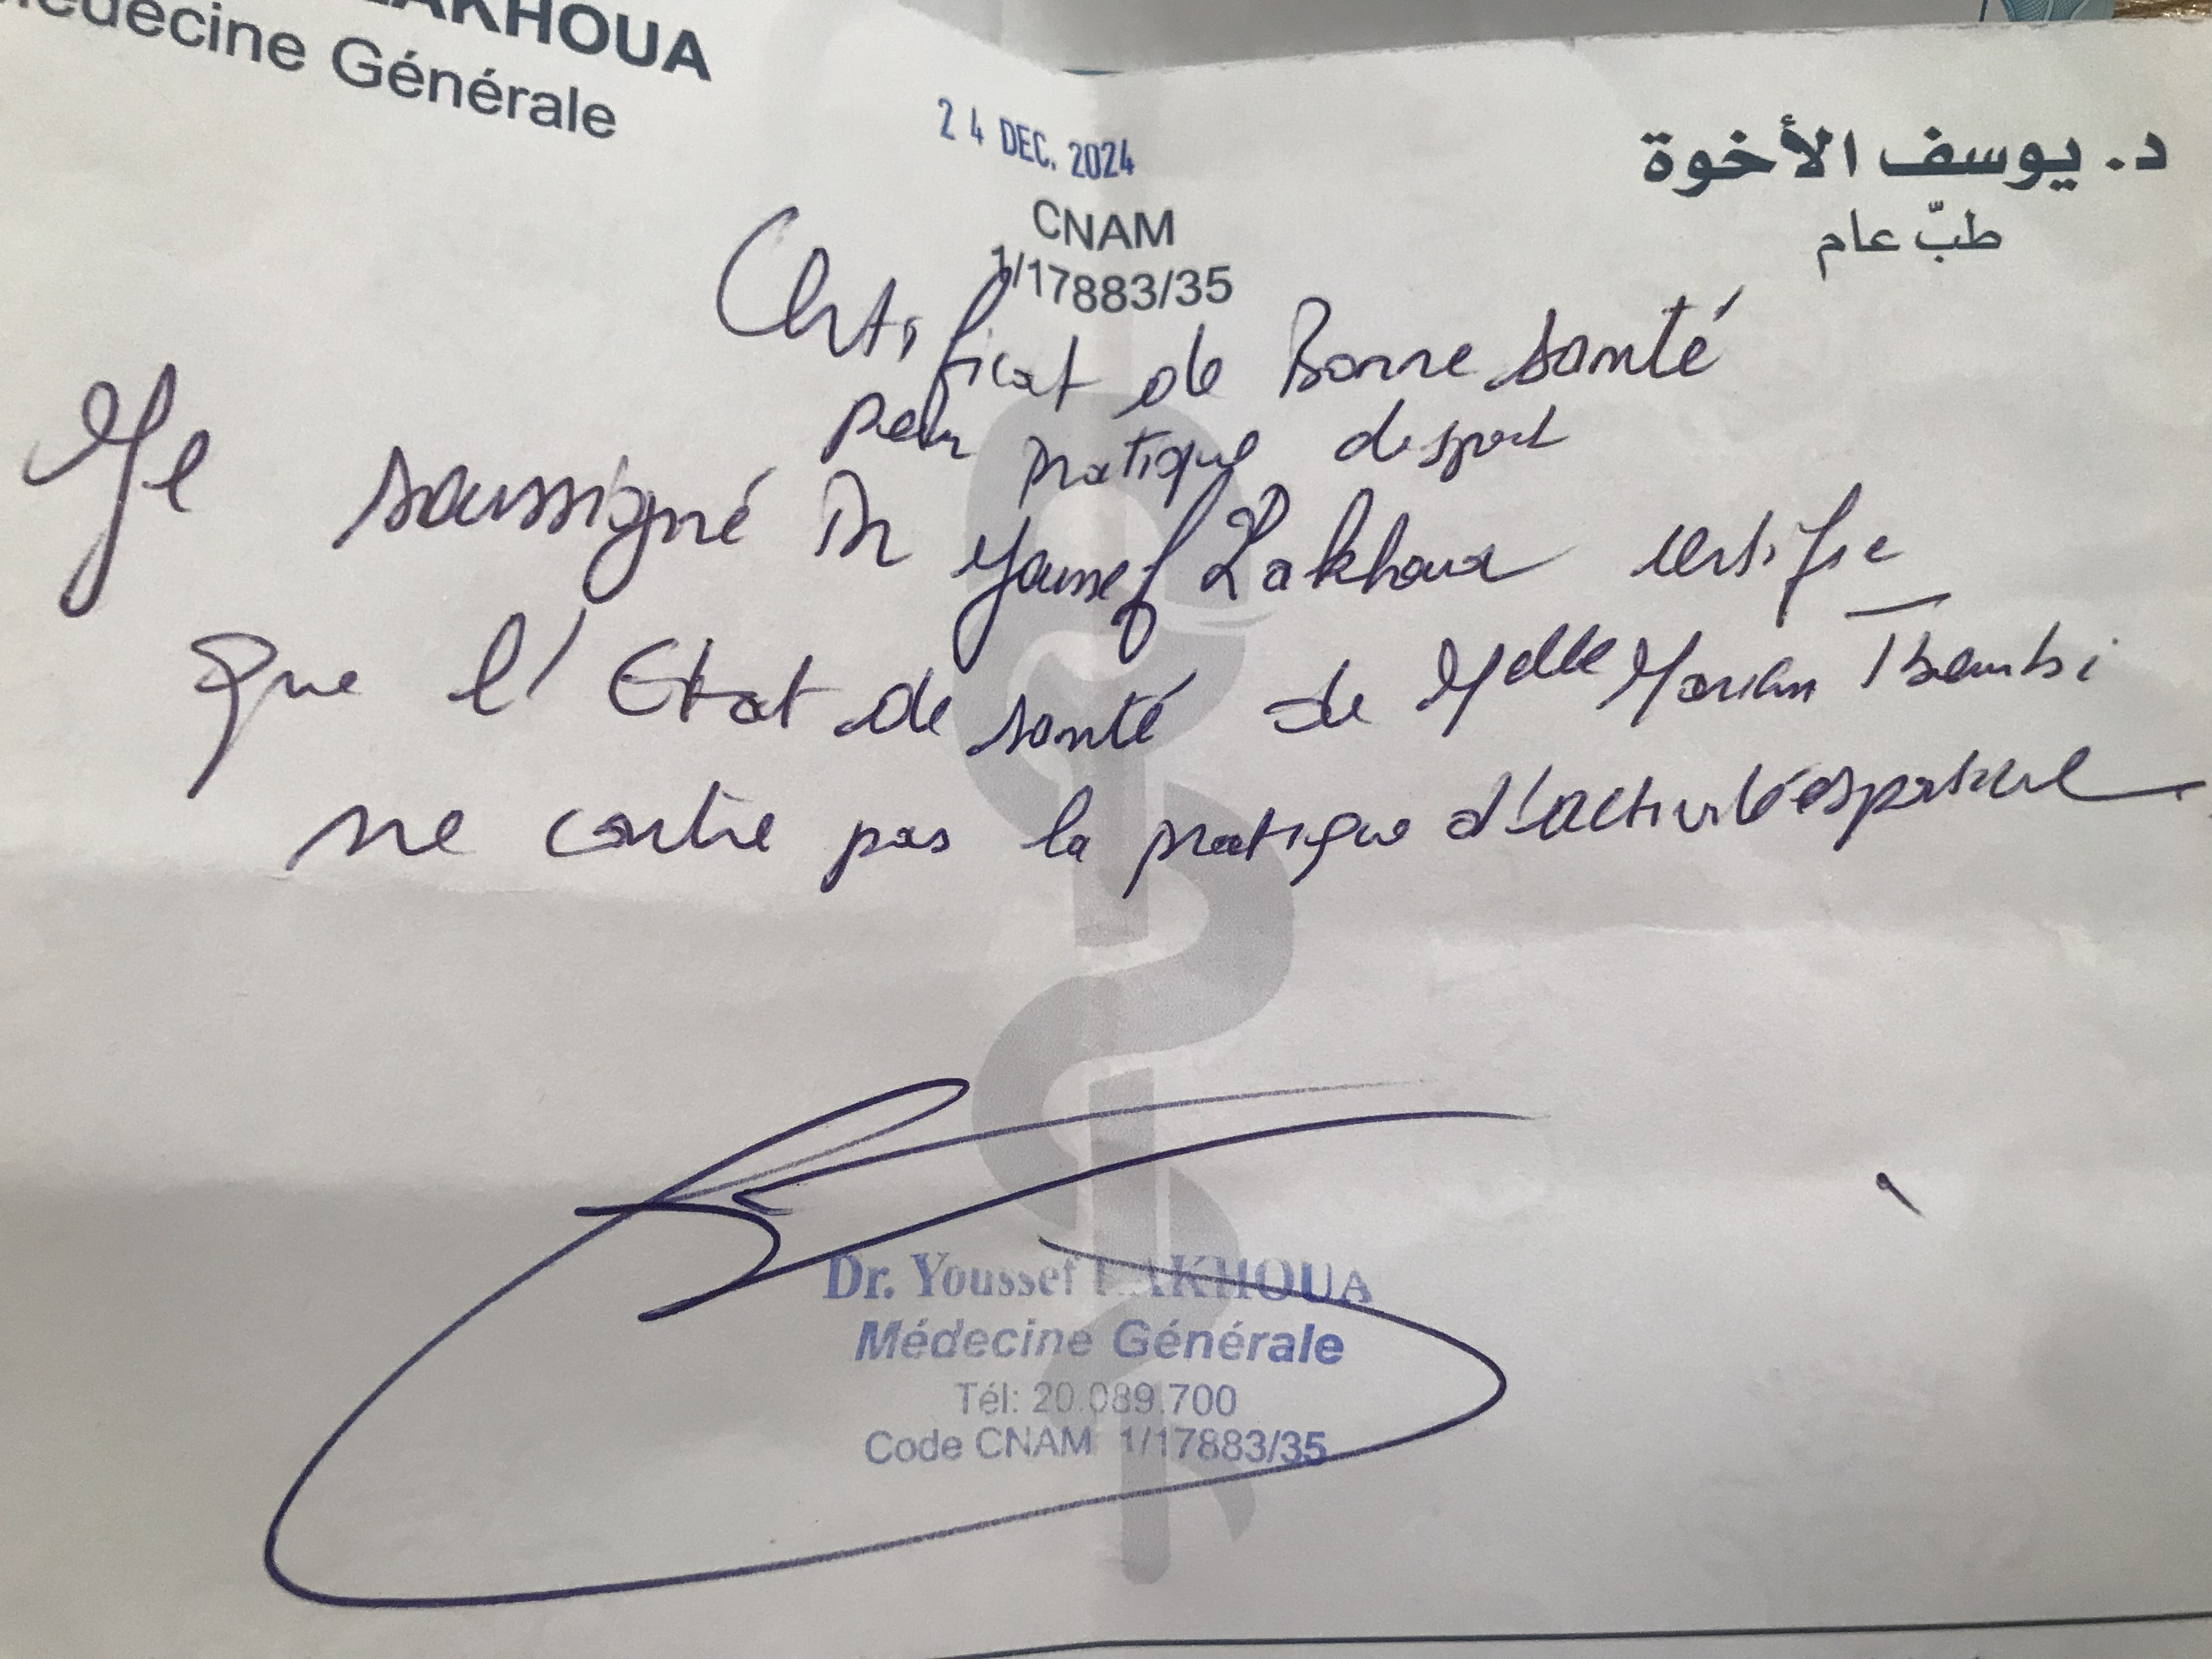 LAKHOUA
Médecine Générale
24 DEC. 2024
CNAM
1/17883/35
د. يوسف الأخوة
طبّ عام
Certificat de Bonne Santé
pour pratique de sport
Je soussigné Dr Youssef Lakhoua certifie
que l'Etat de santé de Melle
ne contre pas la pratique d'activité sportive
Dr. Youssef LAKHOUA
Médecine Générale
Tél: 20.089.700
Code CNAM 1/17883/35